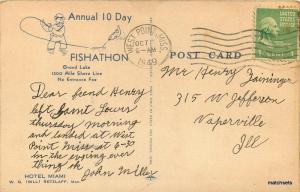 Annual 10 Day
FISHATHON
Grand Lake
1300 Mile Shore Line
No Entrance Fee
WEST POINT, MISS.
OCT
6 - AM
1949
POST CARD
Dear Friend Henry
left Saint Louis
thursday morning
and landed at West
Point Miss at 6-30
in the evning over
thing ok
John Miller
HOTEL MIAMI
W. G. (BILL) RETZLAFF, Mgr.
Mr Henry Zaininger
315 W Jefferson
Naperville
Ill
matchsets